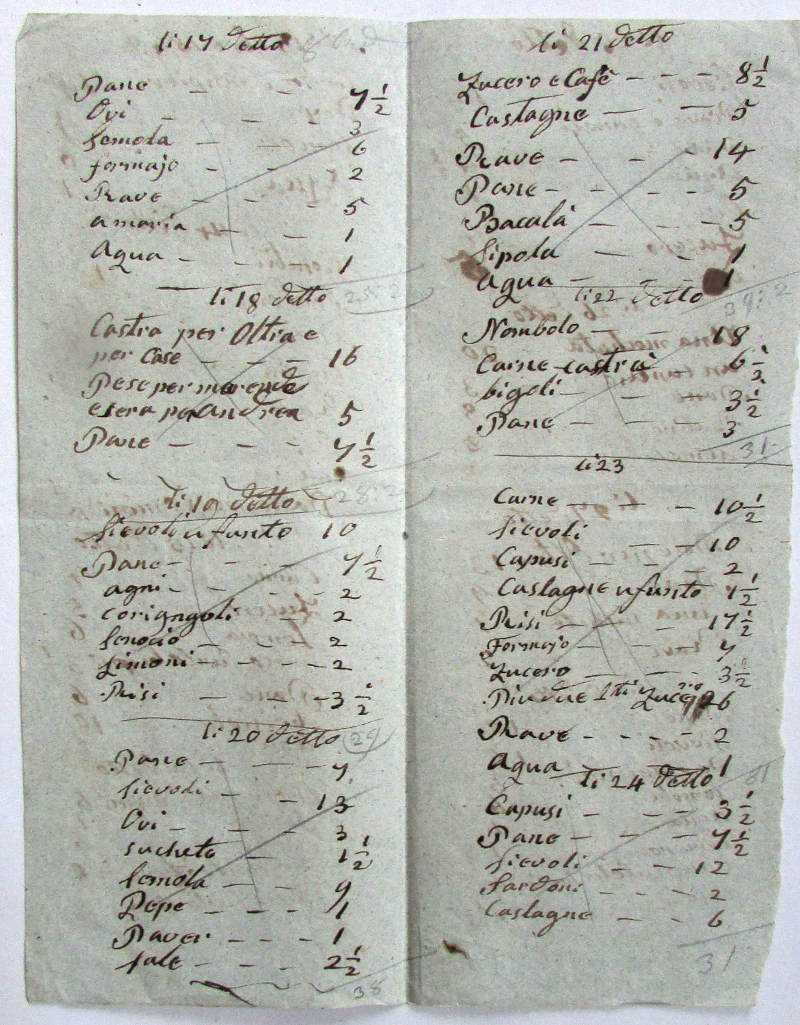 li 17 detto
Pane — — — 7 1/2
Ovi — — — 3
Semola — — — 6
formajo — — — 2
Rave — — — 5
amaria — — — 1
Aqua — — — 1
li 18 detto 25:2
Castra per Oltra e
per Case — — — 16
Pese per merende
e sera per Andrea 5
Pane — — — 7 1/2
28:2
li 19 detto
Sievoli u funto 10
Pane — — — 7 1/2
agni — — — 2
corigngoli — 2
fenocio — — — 2
Limoni — — — 2
Risi — — — 3 1/2
li 20 detto 29
Pane — — 7
Sievoli — — 13
Ovi — — — 3
sucheto — 1 1/2
Semola — — 9
Pepe — — — 1
Paver — — — 1
Sale — — — 2 1/2
38
li 21 detto
Zucero e Cafè — — — 8 1/2
Castagne — — — 5
Rave — — — 14
Pane — — — 5
Bacalà — — — 5
Sipola — — — 1
Aqua — — — 1
li 22 detto 39:2
Nombolo — — — 18
Carne castrà 6 1/2
bigoli — — — 3 1/2
Pane — — — 3
31
li 23
Carne — — — 10 1/2
Sievoli — — — 10
Capusi — — — 2
Castagne u funto 1 1/2
Risi — — — 17 1/2
Formajo — — — 7
Zucero — — — 3 1/2
Piu due Zucero 26
Rave — — — 2
Aqua — 1
li 24 detto 81
Capusi — — — 3 1/2
Pane — — — 7 1/2
Sievoli — — — 12
Sardoni — — — 2
Castagne — — — 6
31